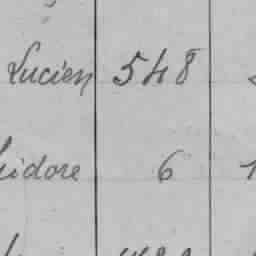 Lucien 548
sidore 6 1